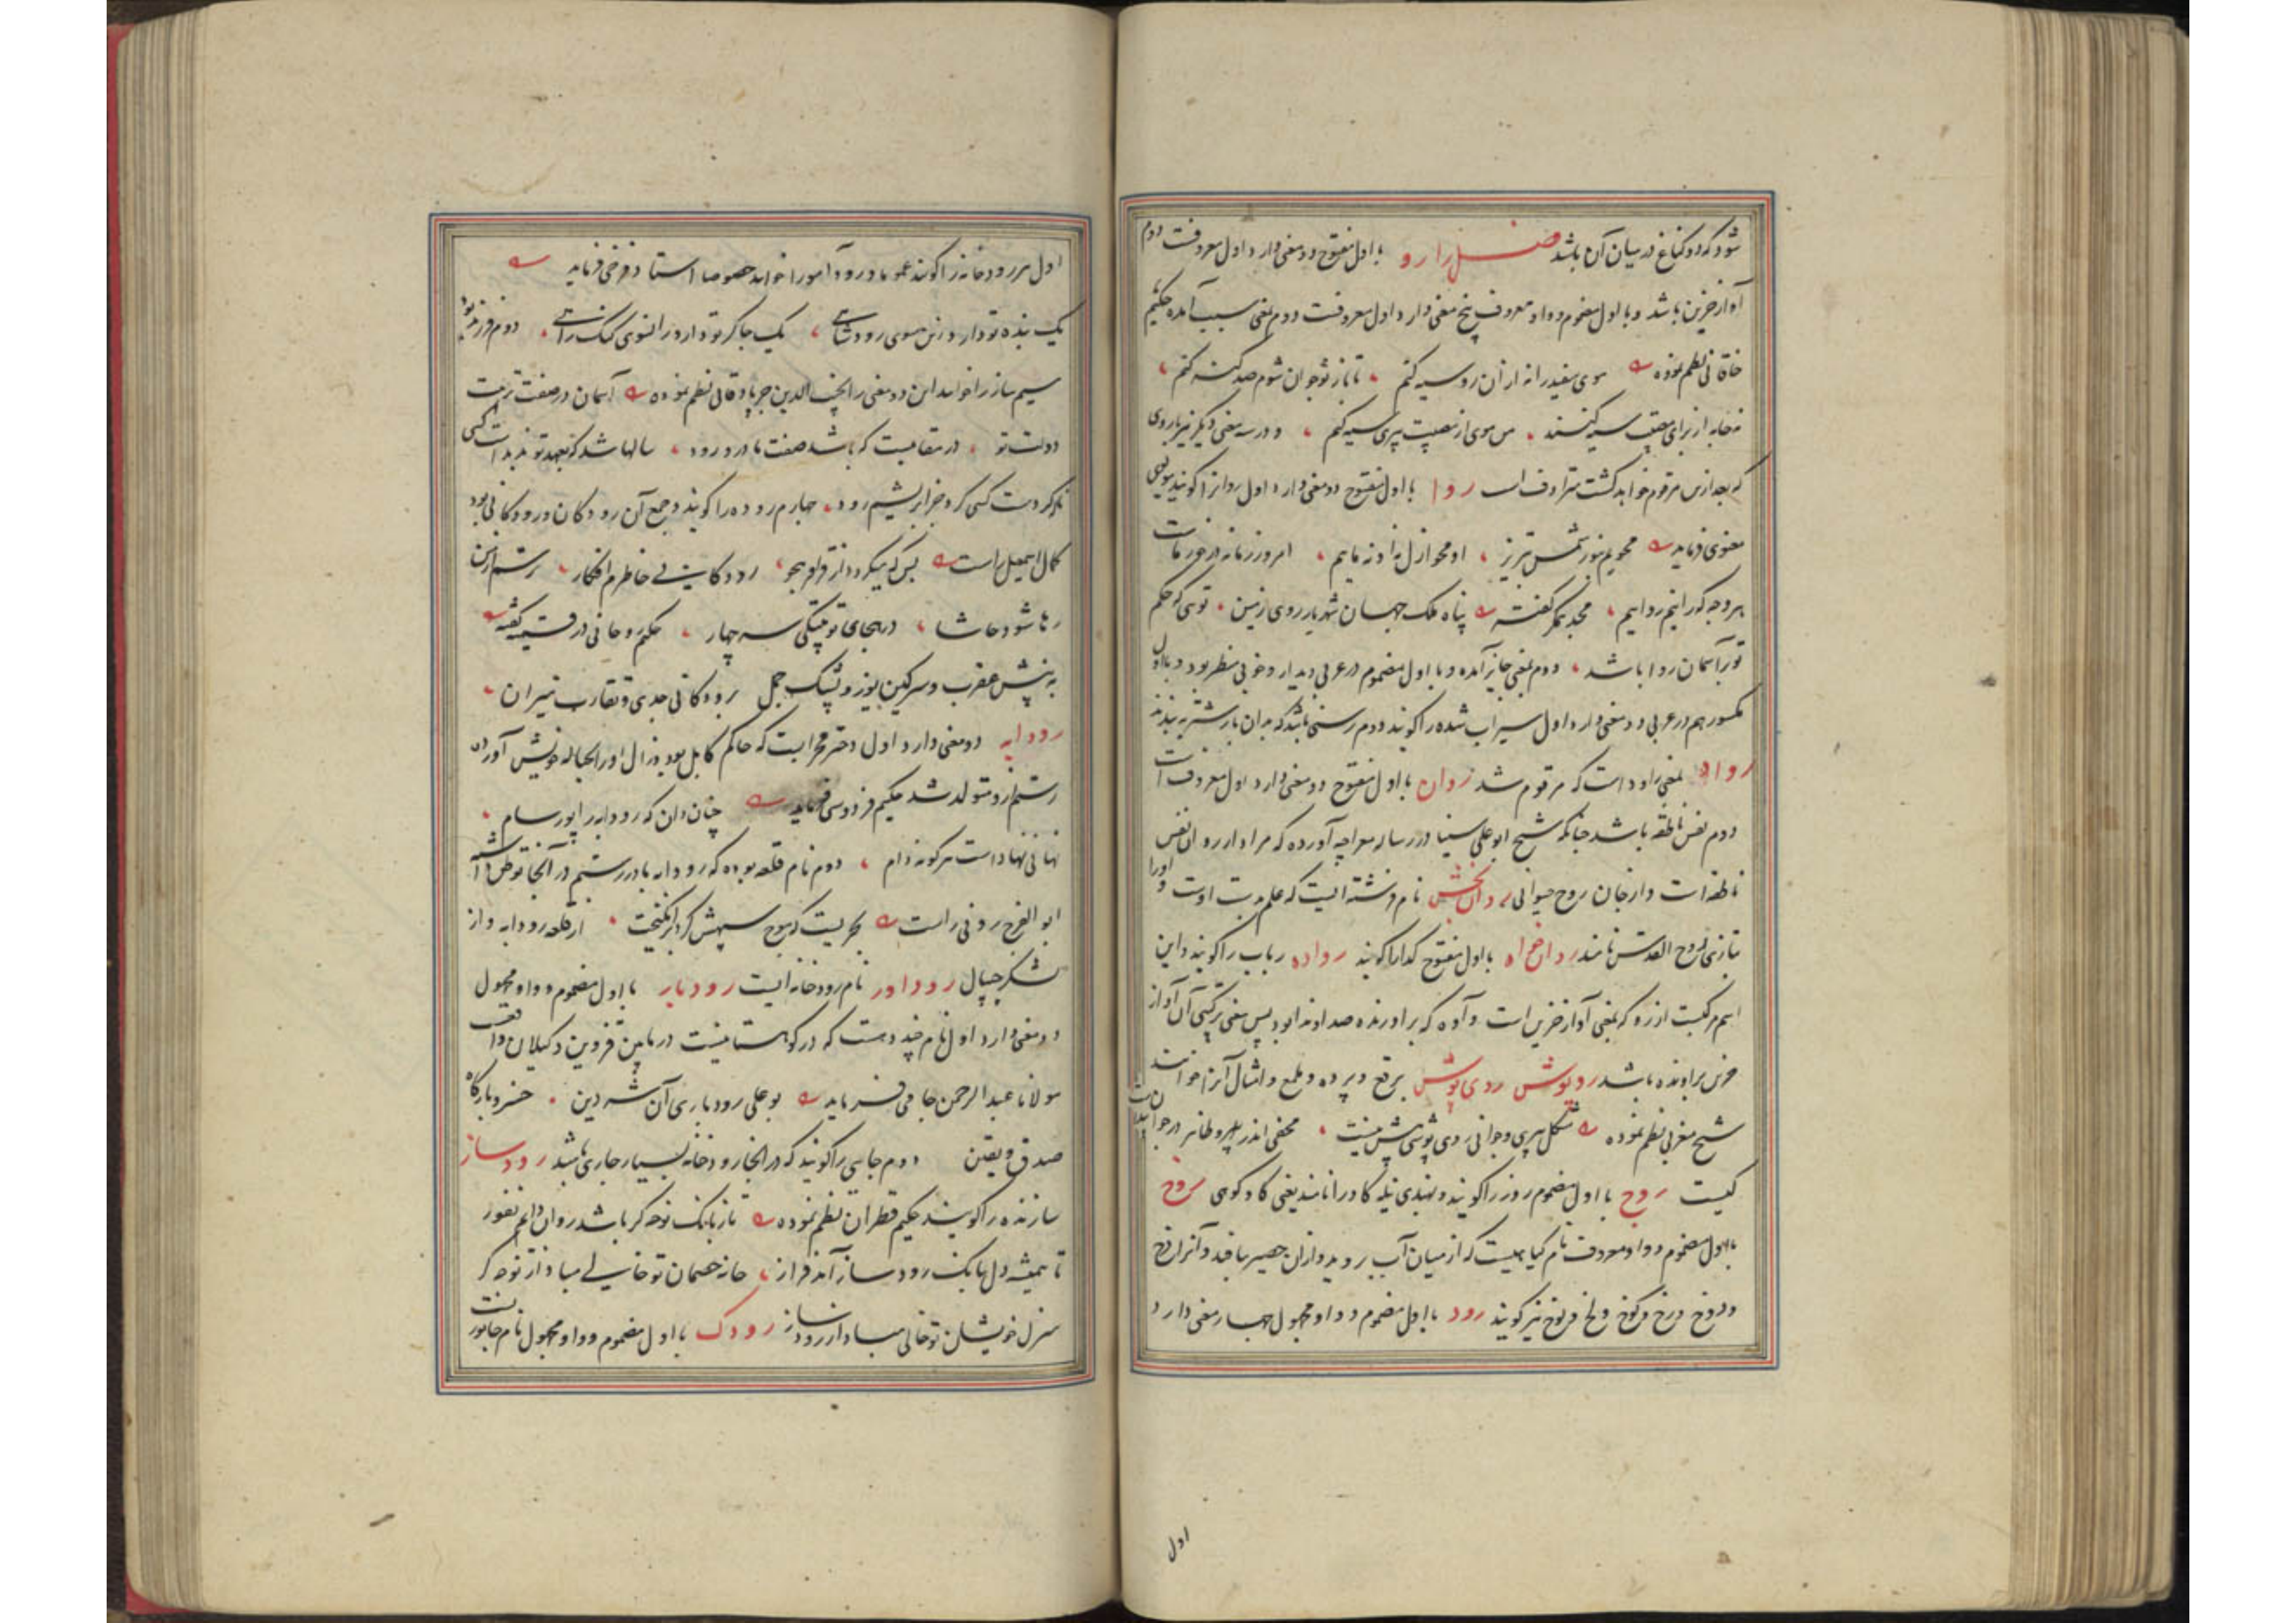 شود که دو کناغ در میان آن باشد فصل را رو با اول مفتوح دو معنی دارد اول معروفست دوم
آواز حزین باشد و با اول مضموم و واو معروف پنج معنی دارد اول معروفست دوم بمعنی سبب آمده حکیم
خاقانی نظم نموده موی سفید را نه از آن رو سیه کنم تا باز نوجوان شوم صد گنه کنم
نه خانه از برای سیه کنند من موی از مصیبت پیری سیه کنم و در سه معنی دیگر نیز با روی
که بعد ازین مرقوم خواهد گشت مترادف است روا با اول مفتوح دو معنی دارد اول روانرا گویند مولوی
معنوی فرماید محویم بنور شمس تبریز او محو ازل نه او نه ماییم امروز زمانه در خور ماست
بهر وجه که رانیم روایم مجد همگر گفته پناه ملک جهان شهریار روی زمین تویی که حکم
تو بر آسمان روا باشد دوم بمعنی جایز آمده و با اول مضموم در عربی دیدار و خوبی منظر بود و با اول
مکسور هم در عربی دو معنی دارد اول سیراب شده را گویند دوم رسنی باشد که بدان بار شتر به بندند
رواد بمعنی راود است که مرقوم شد روان با اول مفتوح دو معنی دارد اول معروفست
دوم نفس ناطقه باشد چنانکه شیخ ابو علی سینا در رساله معراجیه آورده که مراد از روان نفس
ناطقه است و از جان روح حیوانی روان بخش نام فرشته ایست که علم بدست اوست و او را
بتازی روح القدس نامند روان خواه با اول مفتوح گدا را گویند رواده رباب را گویند و این
اسم مرکبست از رو که بمعنی آواز حزین است و آوه که برآورنده صدا و ندا بود پس معنی ترکیبی آن آواز
حزین برآورنده باشد روپوش روی پوش برقع و پرده و ملمع و امثال آنرا خوانند
شیخ مغربی نظم نموده شکل پیری و جوانی روی پوشی بیش نیست مخفی اندر پیر و ظاهر در جوانان
کیست روج با اول مضموم روز را گویند و بهندی نیله گاو را نامند یعنی گاو کوهی روخ
با اول مضموم و واو معروف نام گیاهیست که از میان آب بروید و از آن حصیر بافند و آنرا رخ
و دوخ و رخ و کوخ و لخ و لوخ نیز گویند رود با اول مضموم و واو مجهول چهار معنی دارد
اول
اول هر رودخانه را گویند عموما و رود آمو را خوانند خصوصا استاد فرخی فرماید
یک بنده تو دارد زین سوی رود شاهی یک چاکر تو دارد زانسوی گنگ رایی دوم فرزند بود
سیم ساز را خوانند این دو معنی را نجیب الدین جرباذقانی نظم نموده آسمان در صفت تربیت
دولت تو در مقامیست که باشد صفت مادر و رود سالها شد که بعهد تو ندیدست کسی
که کردست کسی کرد جز ابریشم رود چهارم روده را گویند و جمع آن رودگان و رودگانی بود
کمال اسمعیل راست بس که میگردد از قولو بجو رودگانیست خاطرم افگار رستم ازین
رها شود حاشا در بجای تو پتکی سه چهار حکیم روحانی در قسمیه گفته
به نیش عقرب و سرگین یوز و پشک جمل برودگانی جدی و تقارب نیران
رودابه دو معنی دارد اول دختر مهرابست که حاکم کابل بود و زال او را بحباله خویش آورد
رستم از و متولد شد حکیم فردوسی فرماید چنان دان که رودابه را پور سام
نهانی نهادست هر گونه دام دوم نام قلعه بوده که رودابه مادر رستم در آنجا توطن داشته
ابو الفرج رونی راست بحریست که موج سپهش گرد برانگیخت از قلعه رودابه و از
لشکر جیپال روداور نام رودخانه ایست رودبار با اول مضموم و واو مجهول
دو معنی دارد اول نام چند ده است که در کوهستانیست در مابین قزوین و گیلان واقعست
مولانا عبد الرحمن جامی فرماید بو علی رودباری آن شه دین خسرو بارگاه
صدق و یقین دوم جایی را گویند که در آنجا رودخانه بسیار جاری باشد رودساز
سازنده را گویند حکیم قطران نظم نموده تا ز بانک نوحه گر باشد روان دایم نفور
تا همیشه دل ببانک رودساز آید فراز خانه خصمان تو خالی مبادا از نوحه گر
منزل خویشان تو خالی مبادا از رودساز رودک با اول مضموم و واو مجهول نام جانوریست